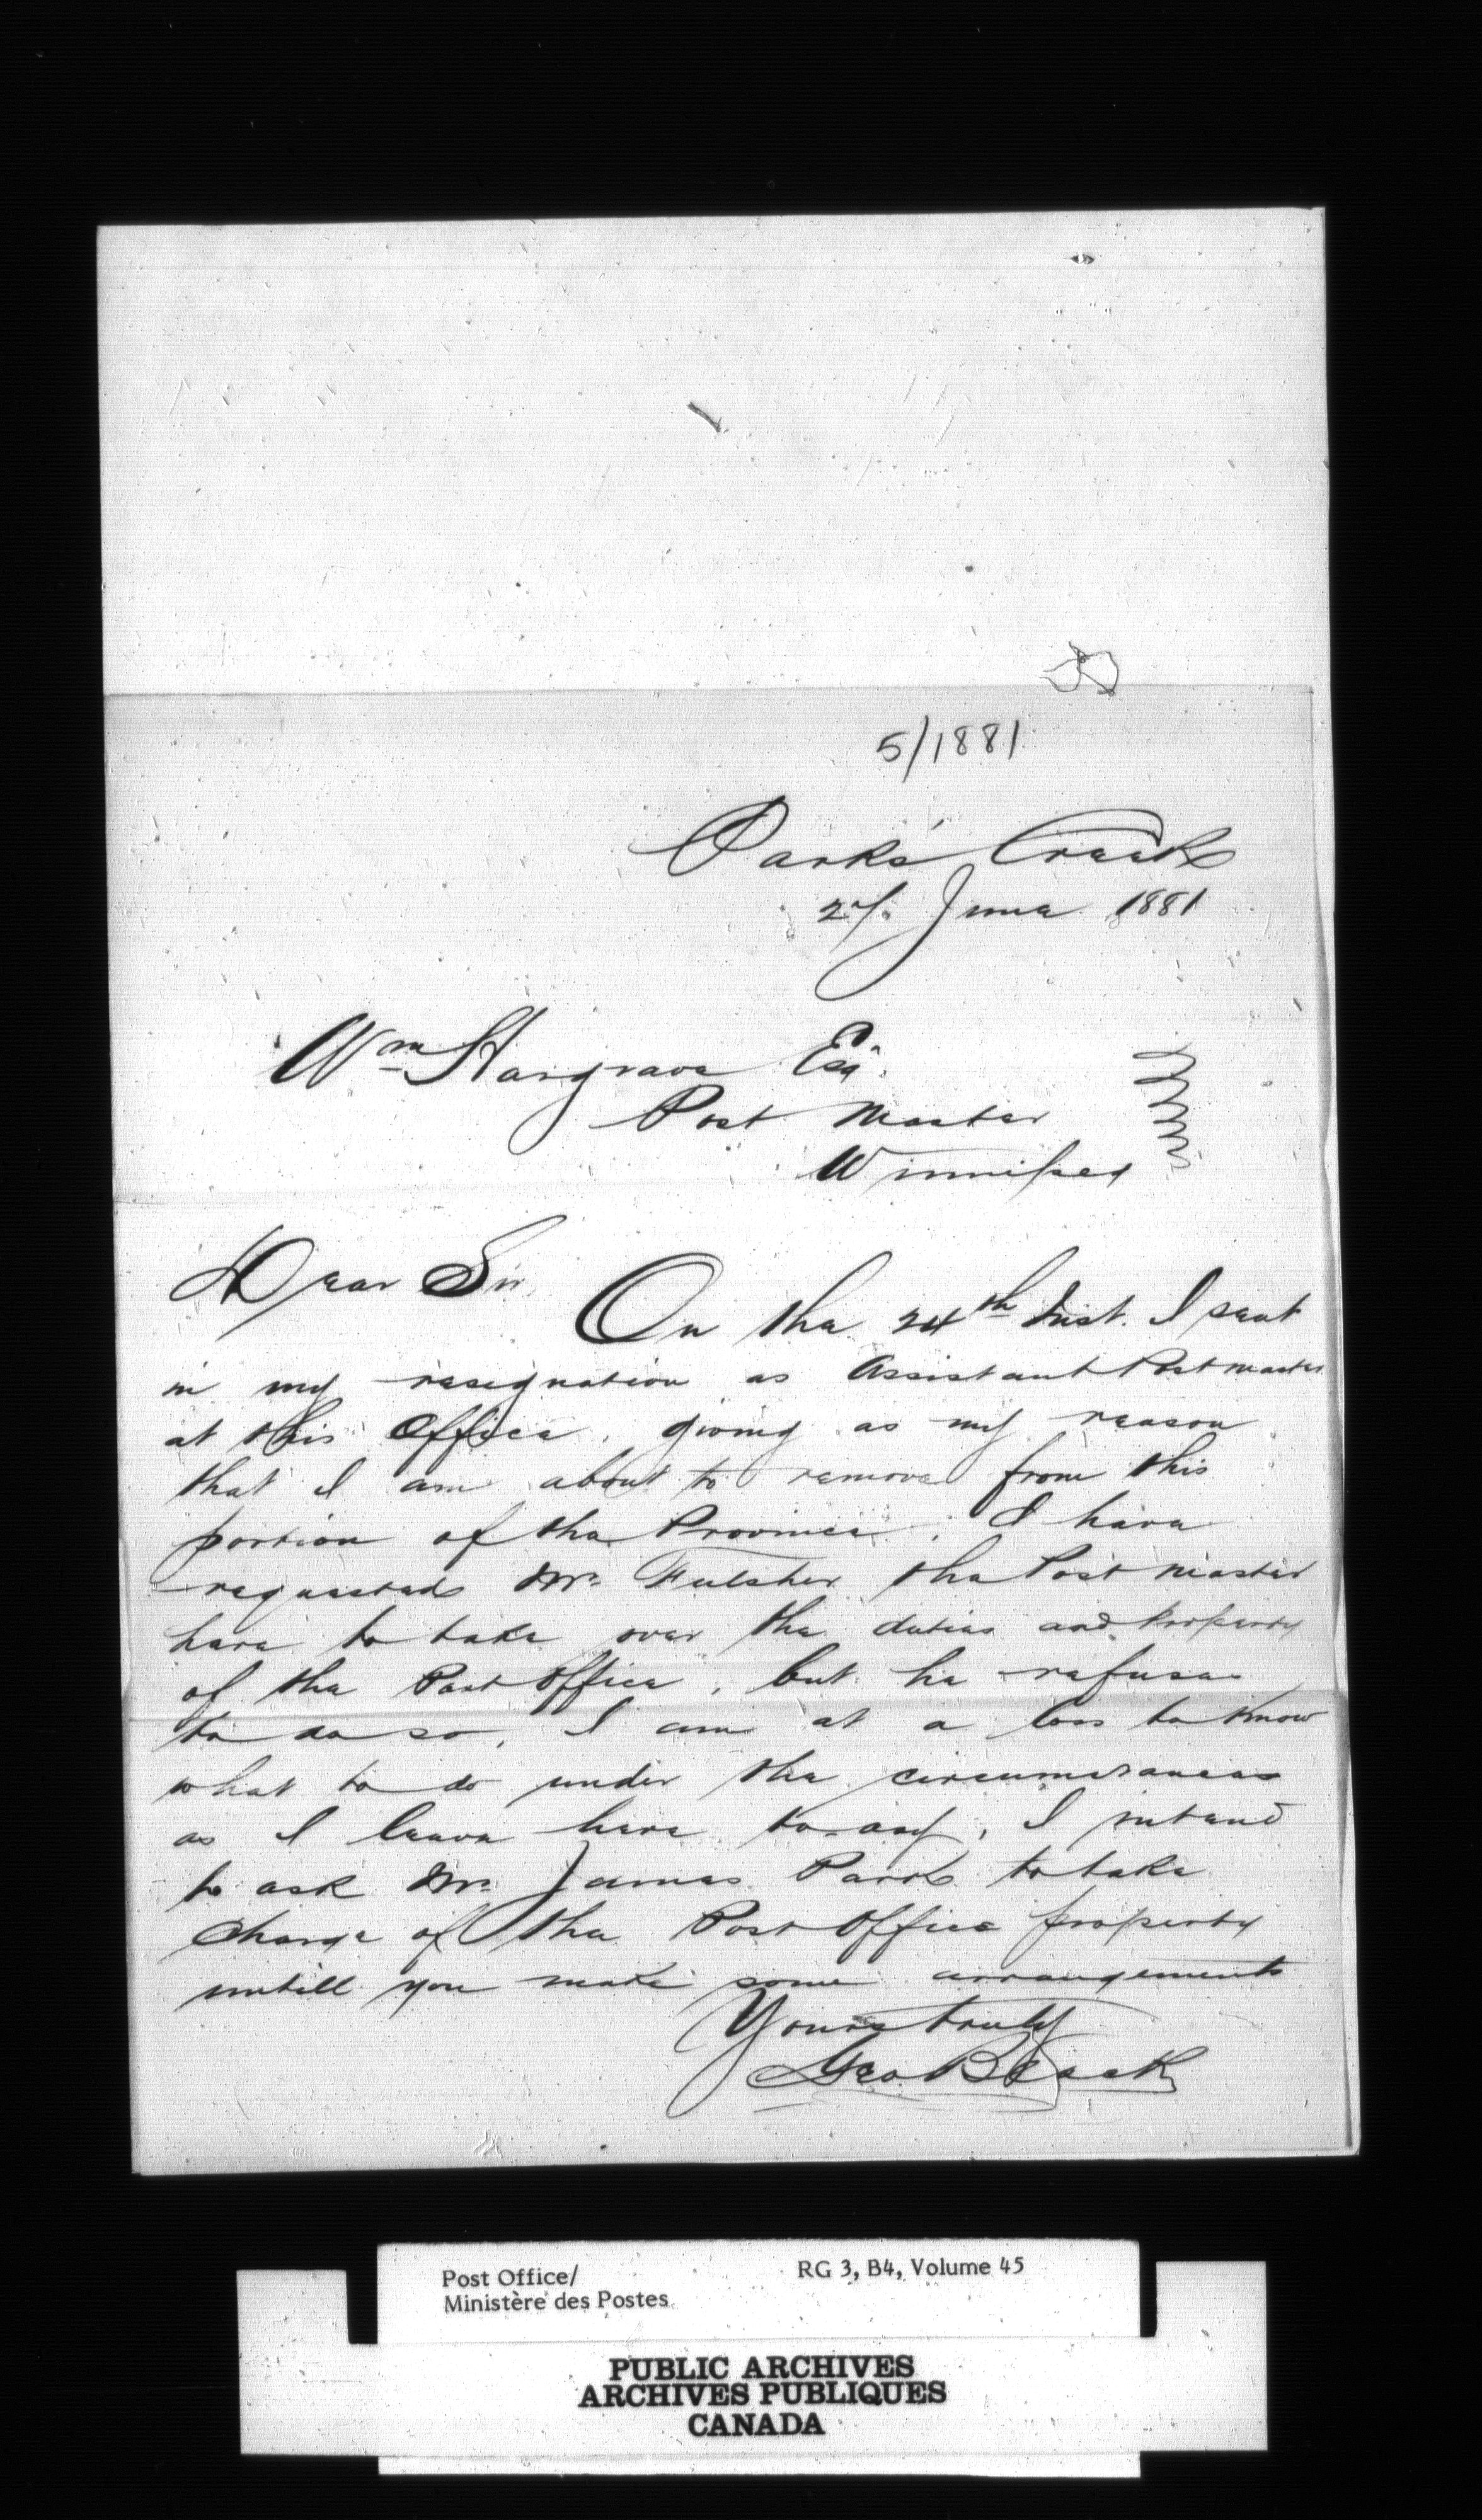 5/1881
Parks' Creek
27. June 1881
Wm Hargrave Esqr.
Post Master
Winnipeg
Dear Sir,
On the 24th Inst. I sent
in my resignation as Assistant Postmaster
at this Office, giving as my reason
that I am about to remove from this
portion of the Province. I have
requested Mr. Fulsher the Post Master
here to take over the duties and Property
of the Post Office, but he refuses
to do so, I am at a loss to know
what to do under the circumstances
as I leave here to-day, I intend
to ask Mr. James Park to take
charge of the Post Office property
untill you make some arrangements
Yours truly
Geo
Post Office/ RG 3, B4, Volume 45
Ministère des Postes
PUBLIC ARCHIVES
ARCHIVES PUBLIQUES
CANADA